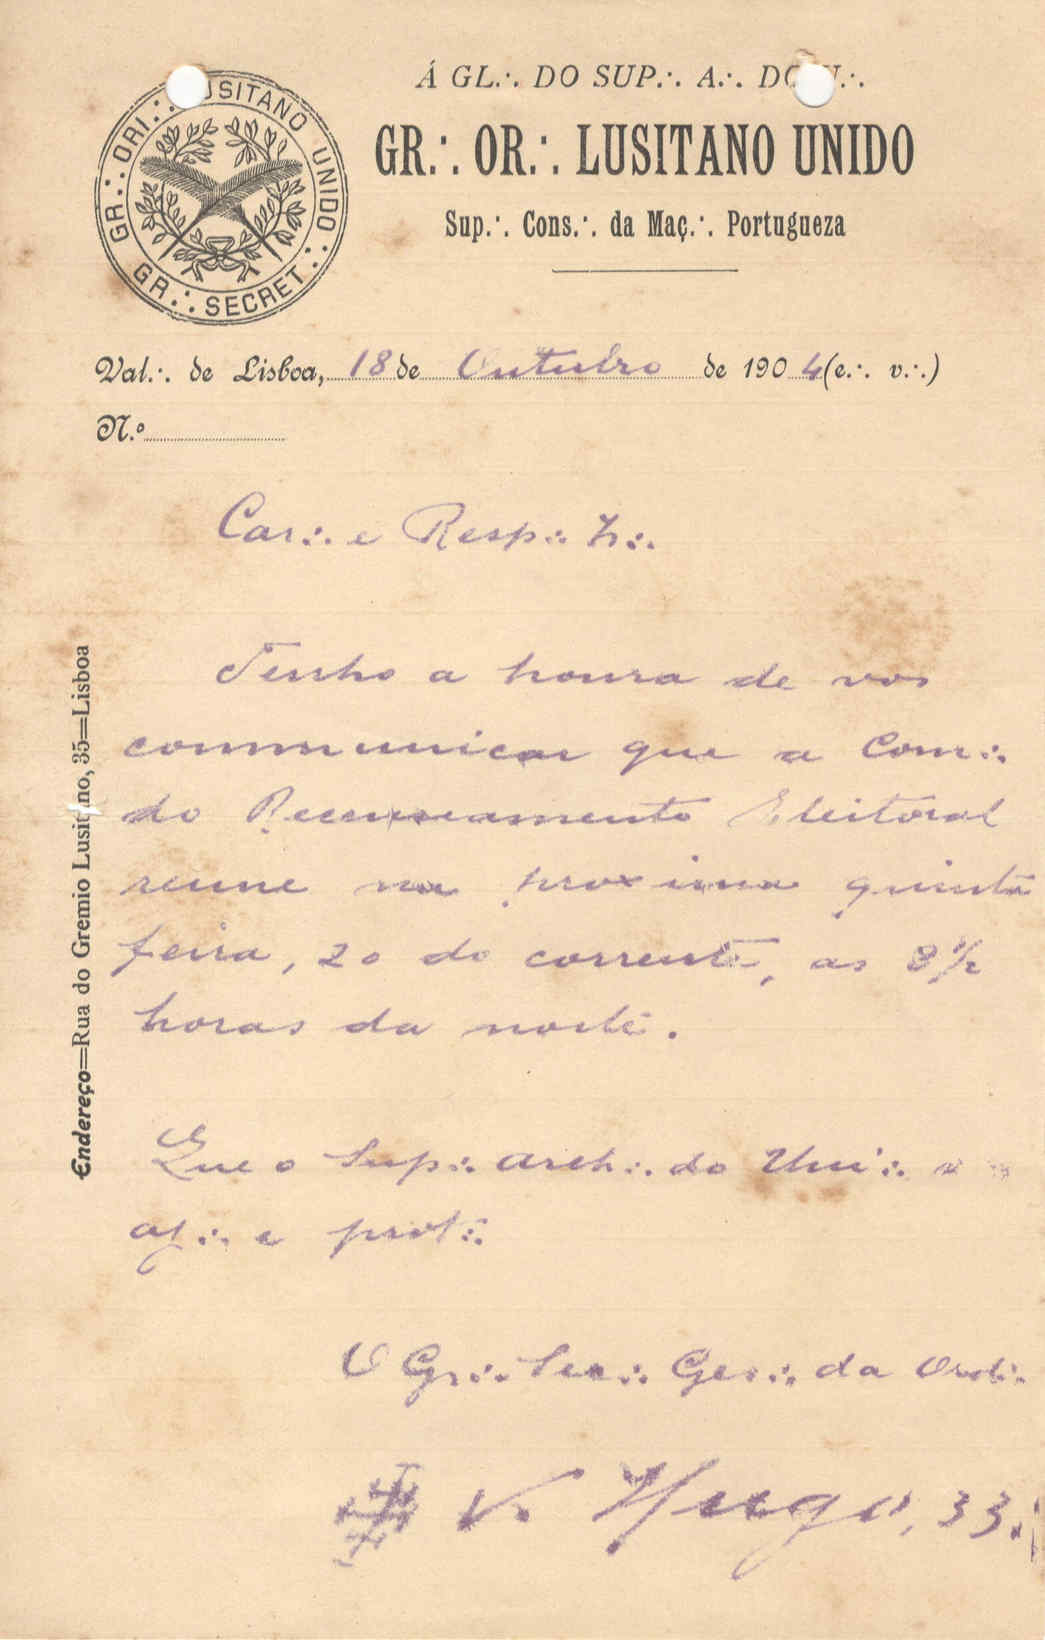 Á GL.·. DO SUP.·. A.·. DO U.·.
GR.·. OR.·. LUSITANO UNIDO
Sup.·. Cons.·. da Maç.·. Portugueza
GR.·. ORI.·. LUSITANO UNIDO.·.
GR.·. SECRET.·.
Val.·. de Lisboa, 18 de Outubro de 1904 (e.·. v.·.)
N.º
Car.·. e Resp.·. Ir.·.
Tenho a honra de vos
communicar que a Com.·.
do Recenseamento Eleitoral
reune na proxima quinta
feira, 20 do corrente, as 8 1/2
horas da noite.
Que o Sup.·. Arch.·. do Uni.·. v
aj.·. e prot.·.
O Gr.·. Sec.·. Ger.·. da Ord.·.
V. Hugo, 33.·.
Endereço=Rua do Gremio Lusitano, 35=Lisboa